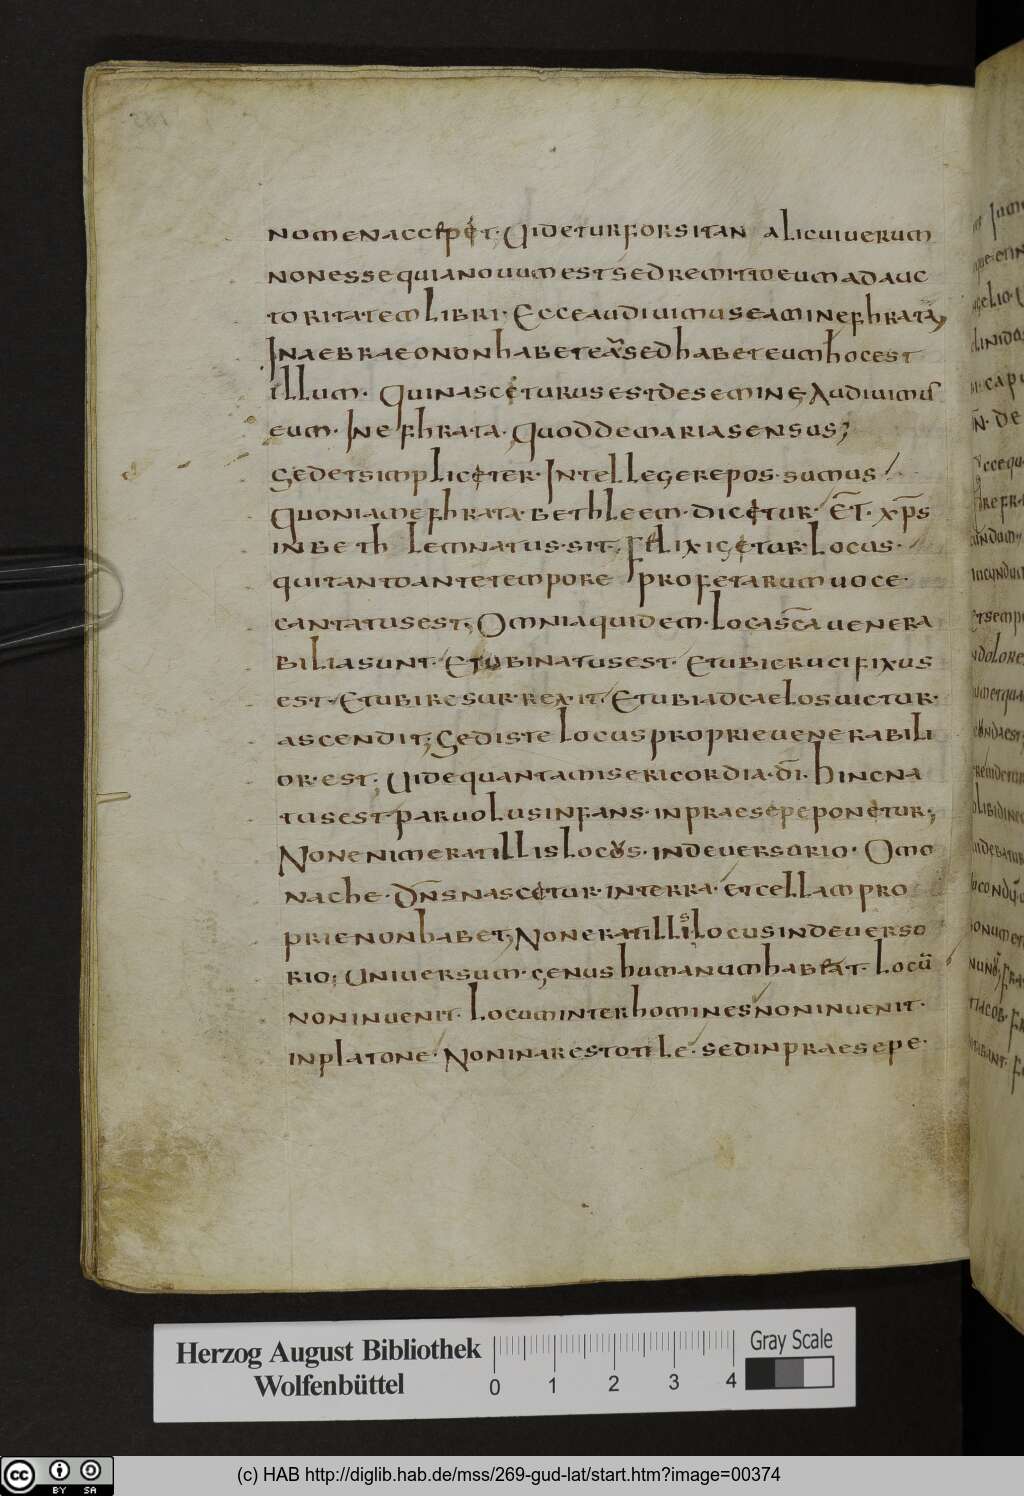 nomenaccepit. Uideturforsitan alicuiuerum
nonessequianouumestsedremittoeumadauc
toritatem libri. Ecceaudiuimuseaminefhrata,
Inaebraeononhabeteāsedhabeteumhocest
illum. Quinasceturusestdesemine. Audiuimus
eum. Inefhrata. Quoddemariasensus;
Sedetsimpliciter. Intellegerepos.sumus
Quoniamefhrata.bethleem.dicitur. ET. xp̄s
inbeth lemnatus.sit.
quitantoantetempore profetarumuoce.
cantatusest; Omniaquidem.locasc̄auenera
biliasunt. Etubinatusest. Etubicrucifixus
est. Etubiresur.rex.it. Etubiadcaelosuictur.
ascendit; Sedistelocusproprieuenerabili
or.est; Uidequantamisericordia.dī. hincna
tusestparuolusinfans.inpraesepeponitur;
Nonenimeratillislocus.indeuersorio. Omo
nache. Dn̄snascitur.interra.etcellampro
prienonhabet, Noneratillislocusindeuerso
rio; Uniuersum.genushumanumhabeat. locū
noninuenit. Locuminterhominesnoninuenit.
inplatone. Noninarestotile. sedinpraesepe.
Herzog August Bibliothek
Wolfenbüttel
0 1 2 3 4
Gray Scale
cc BY SA
(c) HAB http://diglib.hab.de/mss/269-gud-lat/start.htm?image=00374